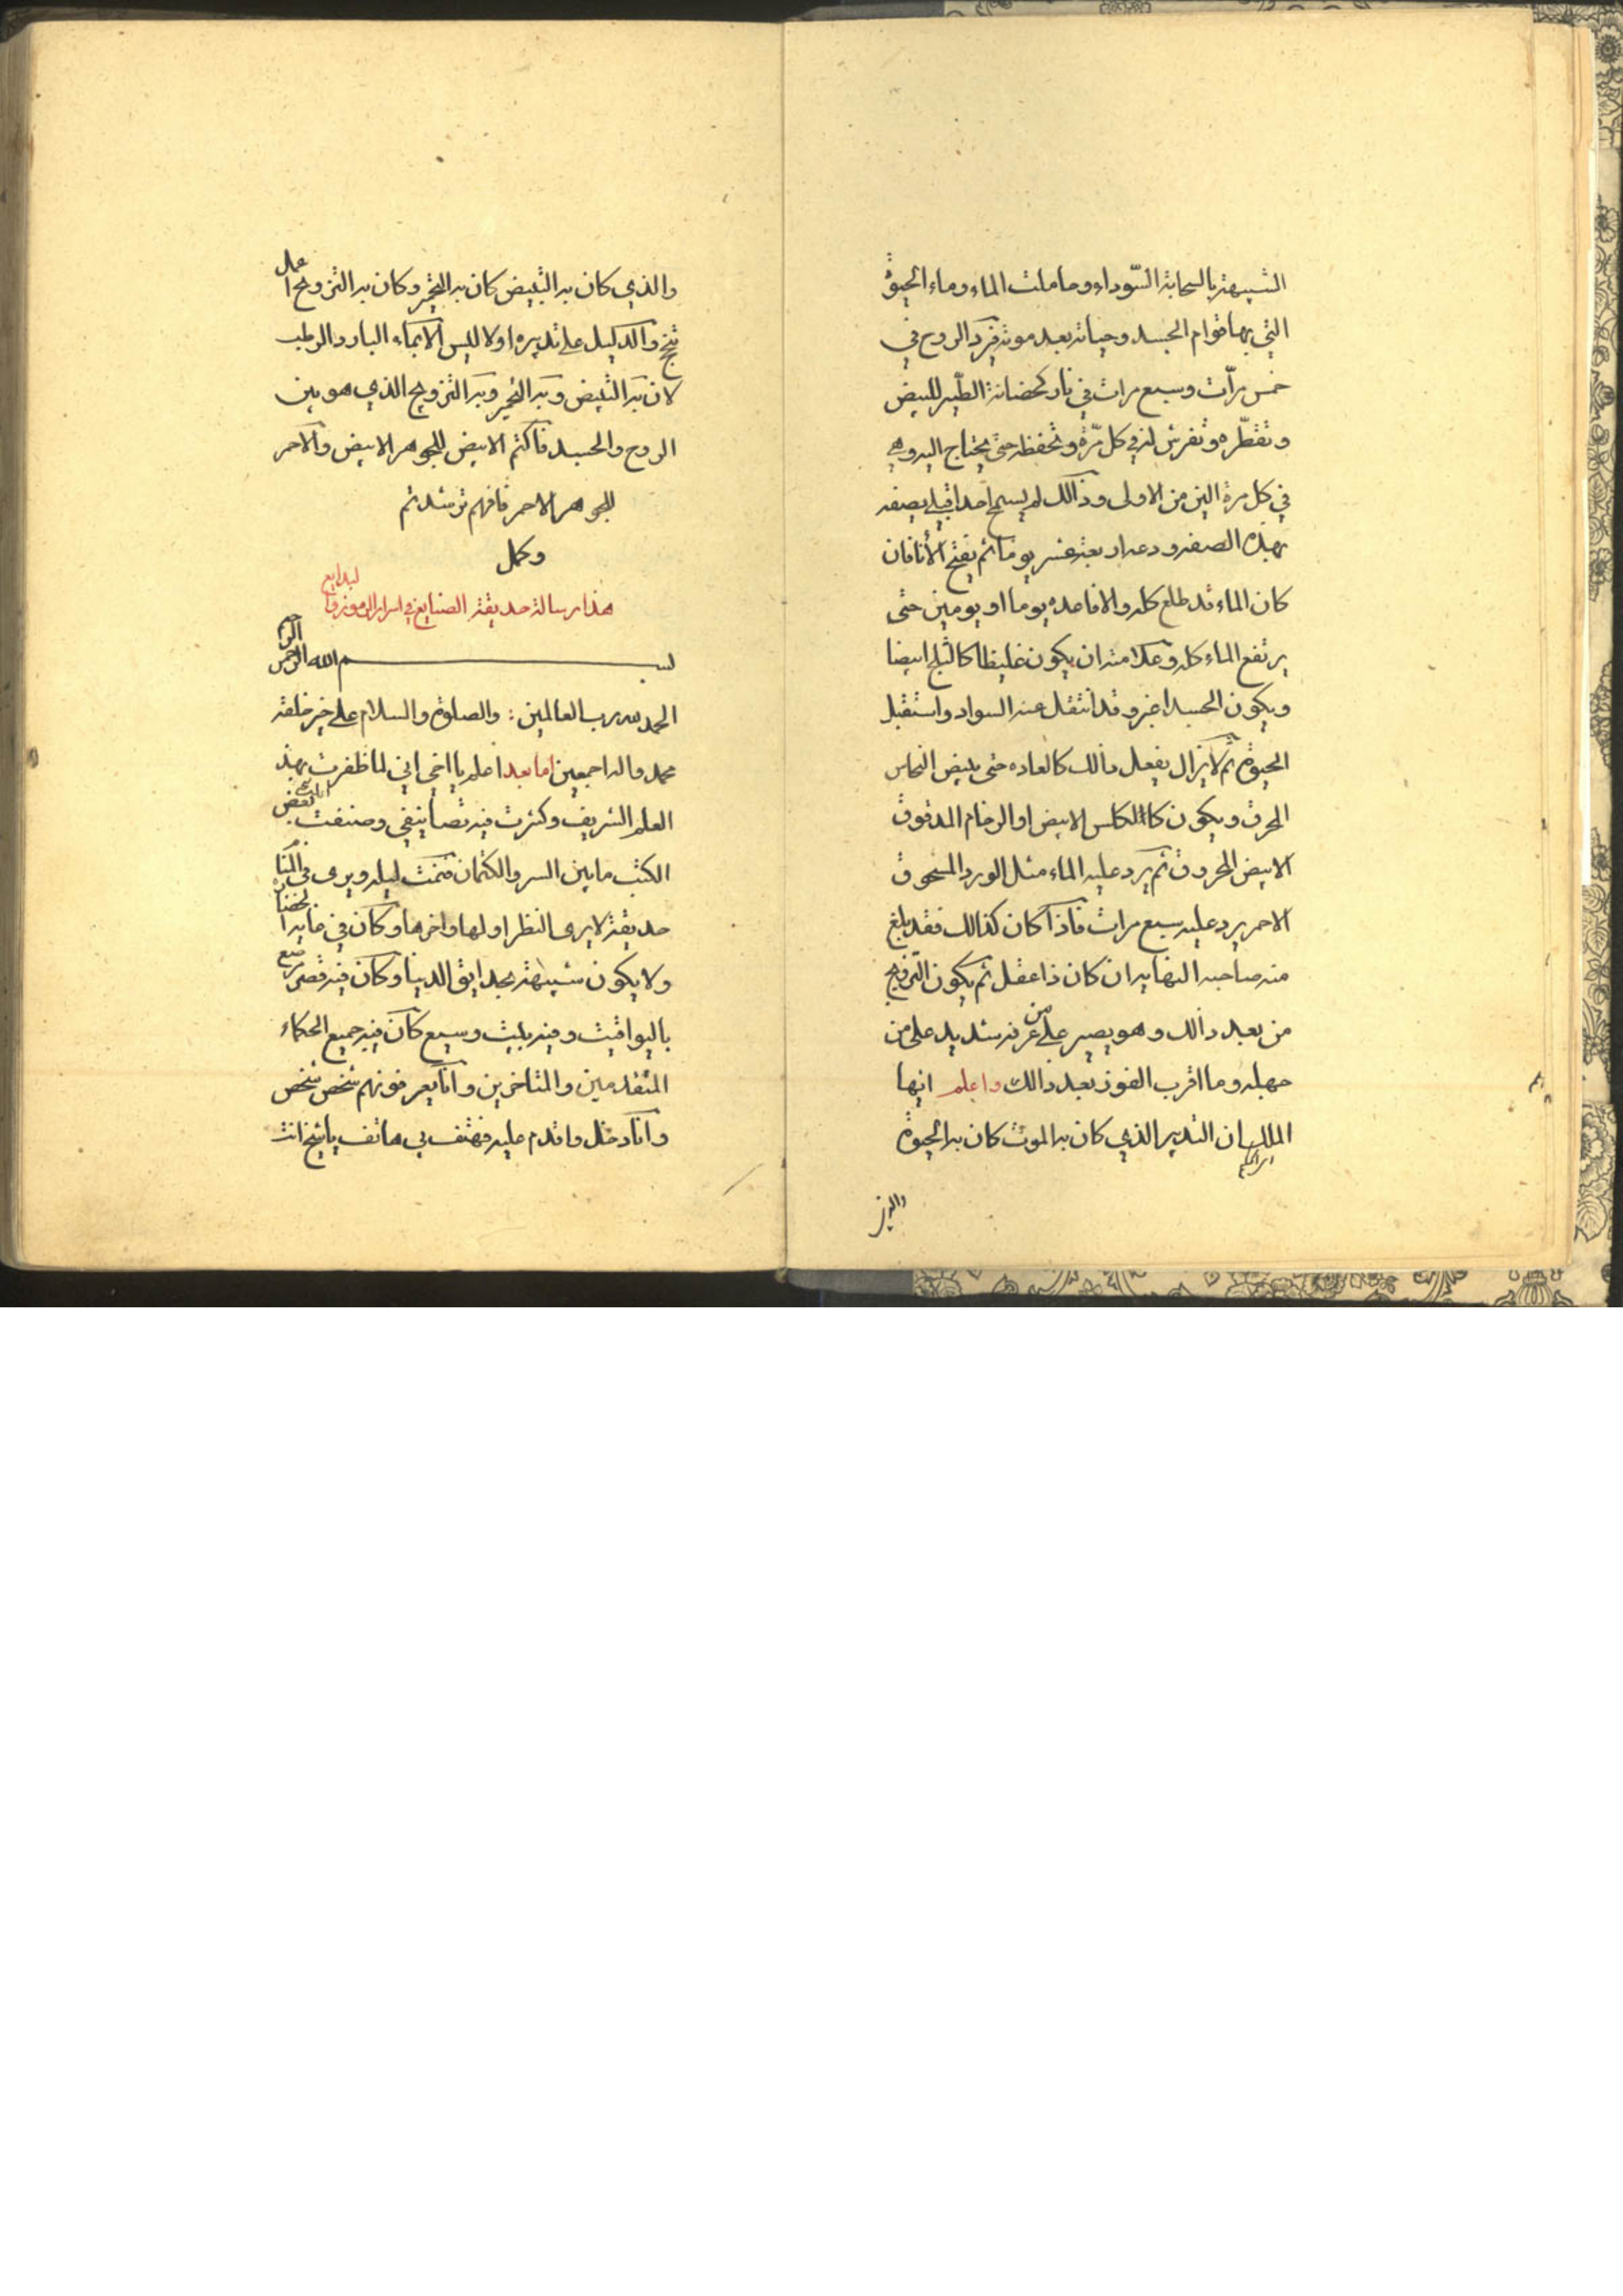 الشبيهة بالسحابة السّوداء وحاملت الماء وماء الحيوة
التي بها قوام الجسد وحياته بعد موته فيرد الروح في
خمس مرّات وسبع مرات في نار كحضانة الطّير للبيض
وتقطّره وتفرش له في كل مرّة وتحفظه حتى يحتاج اليه وهي
في كل مرة الين من الاولى وذالك لم يسمح احد اقبلي يصفه
بهذه الصفه ودعه اربعة عشر يوما ثم يفتح الأنا فان
كان الماء قد طلع كله والا فاعده يوما او يومين حتى
يرتفع الماء كله وعلامته ان يكون غليظا كالثلج ابيضا
ويكون الجسد اغبر وقد انتقل عنه السواد واستقبل
الحيوة ثم لا يزال يفعل ذالك كالعاده حتى يبيض النحاس
المحرق ويكون كا الكلس الابيض او الرخام المدقوق
الابيض المحروق ثم يرد عليه الماء مثل الورد المسحوق
الاحمر يرد عليه سبع مرات فاذا كان كذالك فقد بلغ
منه صاحبه النهايه ان كان ذا عقل ثم يكون التزويج
من بعد ذالك وهو يصير على من عرفه شديد على من
جهله وما اقرب الفوز بعد ذالك واعلم ايها
الملك ان التدبير الذي كان به الموت كان به الحيوة
والذي
والذي كان به التبييض كان به التحمير وكان به التزويج اعمال
نتج والدليل على تدبيره اولا لليس الا بماء البارد الرطب
لان به التبيض وبه التحمير وبه التزويج الذي هو بين
الروح والجسد فاكتم الابيض للجوهر الابيض والاحمر
للجوهر الاحمر فافهم ترشد تم
وكمل
هذا رسالة حديقة الصنايع في اسرار الرموز والبدايع
بسم الله الرحمن الرحيم
الحمد لله رب العالمين : والصلوة والسلام على خير خلقه
محمد واله اجمعين اما بعد اعلم يا اخي اني لما ظفرت بهذ
العلم الشريف وكثرت فيه تصانيفي وصنفت بعض
الكتب ما بين السر والكتمان فنمت ليله ويرى في المنا
حديقة لا يرى النظر اولها واخرها وكان في غاية الخضا
ولا يكون شبيهة بحدايق الدنيا وكان فيه قصر رصع
باليواقيت وفيه بليث وسيع كان فيه جميع الحكماء
المتقدمين والمتاخرين وانا يعرفونهم شخص شخص
وانا دخل واقدم عليه فهتف بي هاتف يا شيخ انت